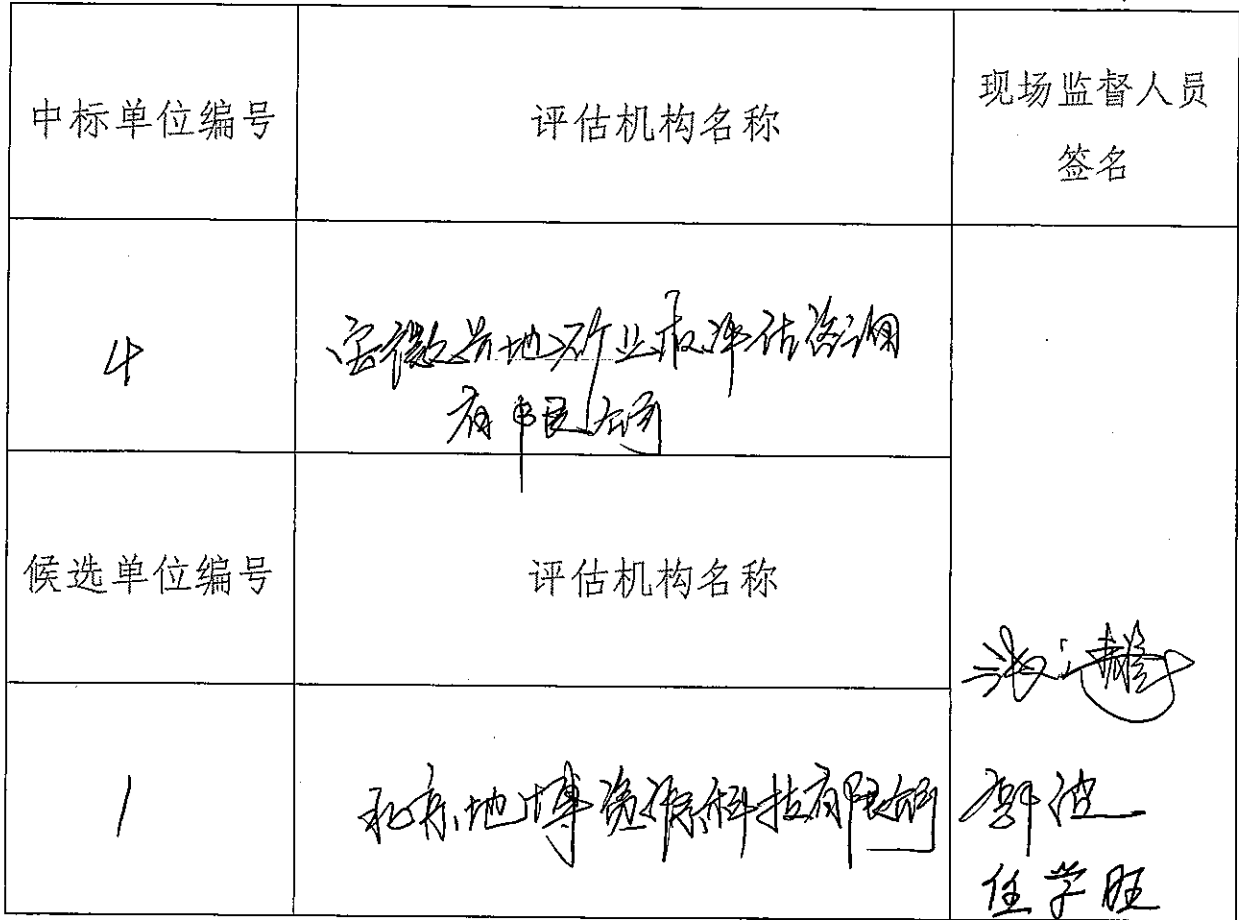 中标单位编号 评估机构名称 现场监督人员
签名
4 安徽 地矿业权评估咨询
有限公司
候选单位编号 评估机构名称
1 北京地博资源科技有限公司
郭波
任学旺